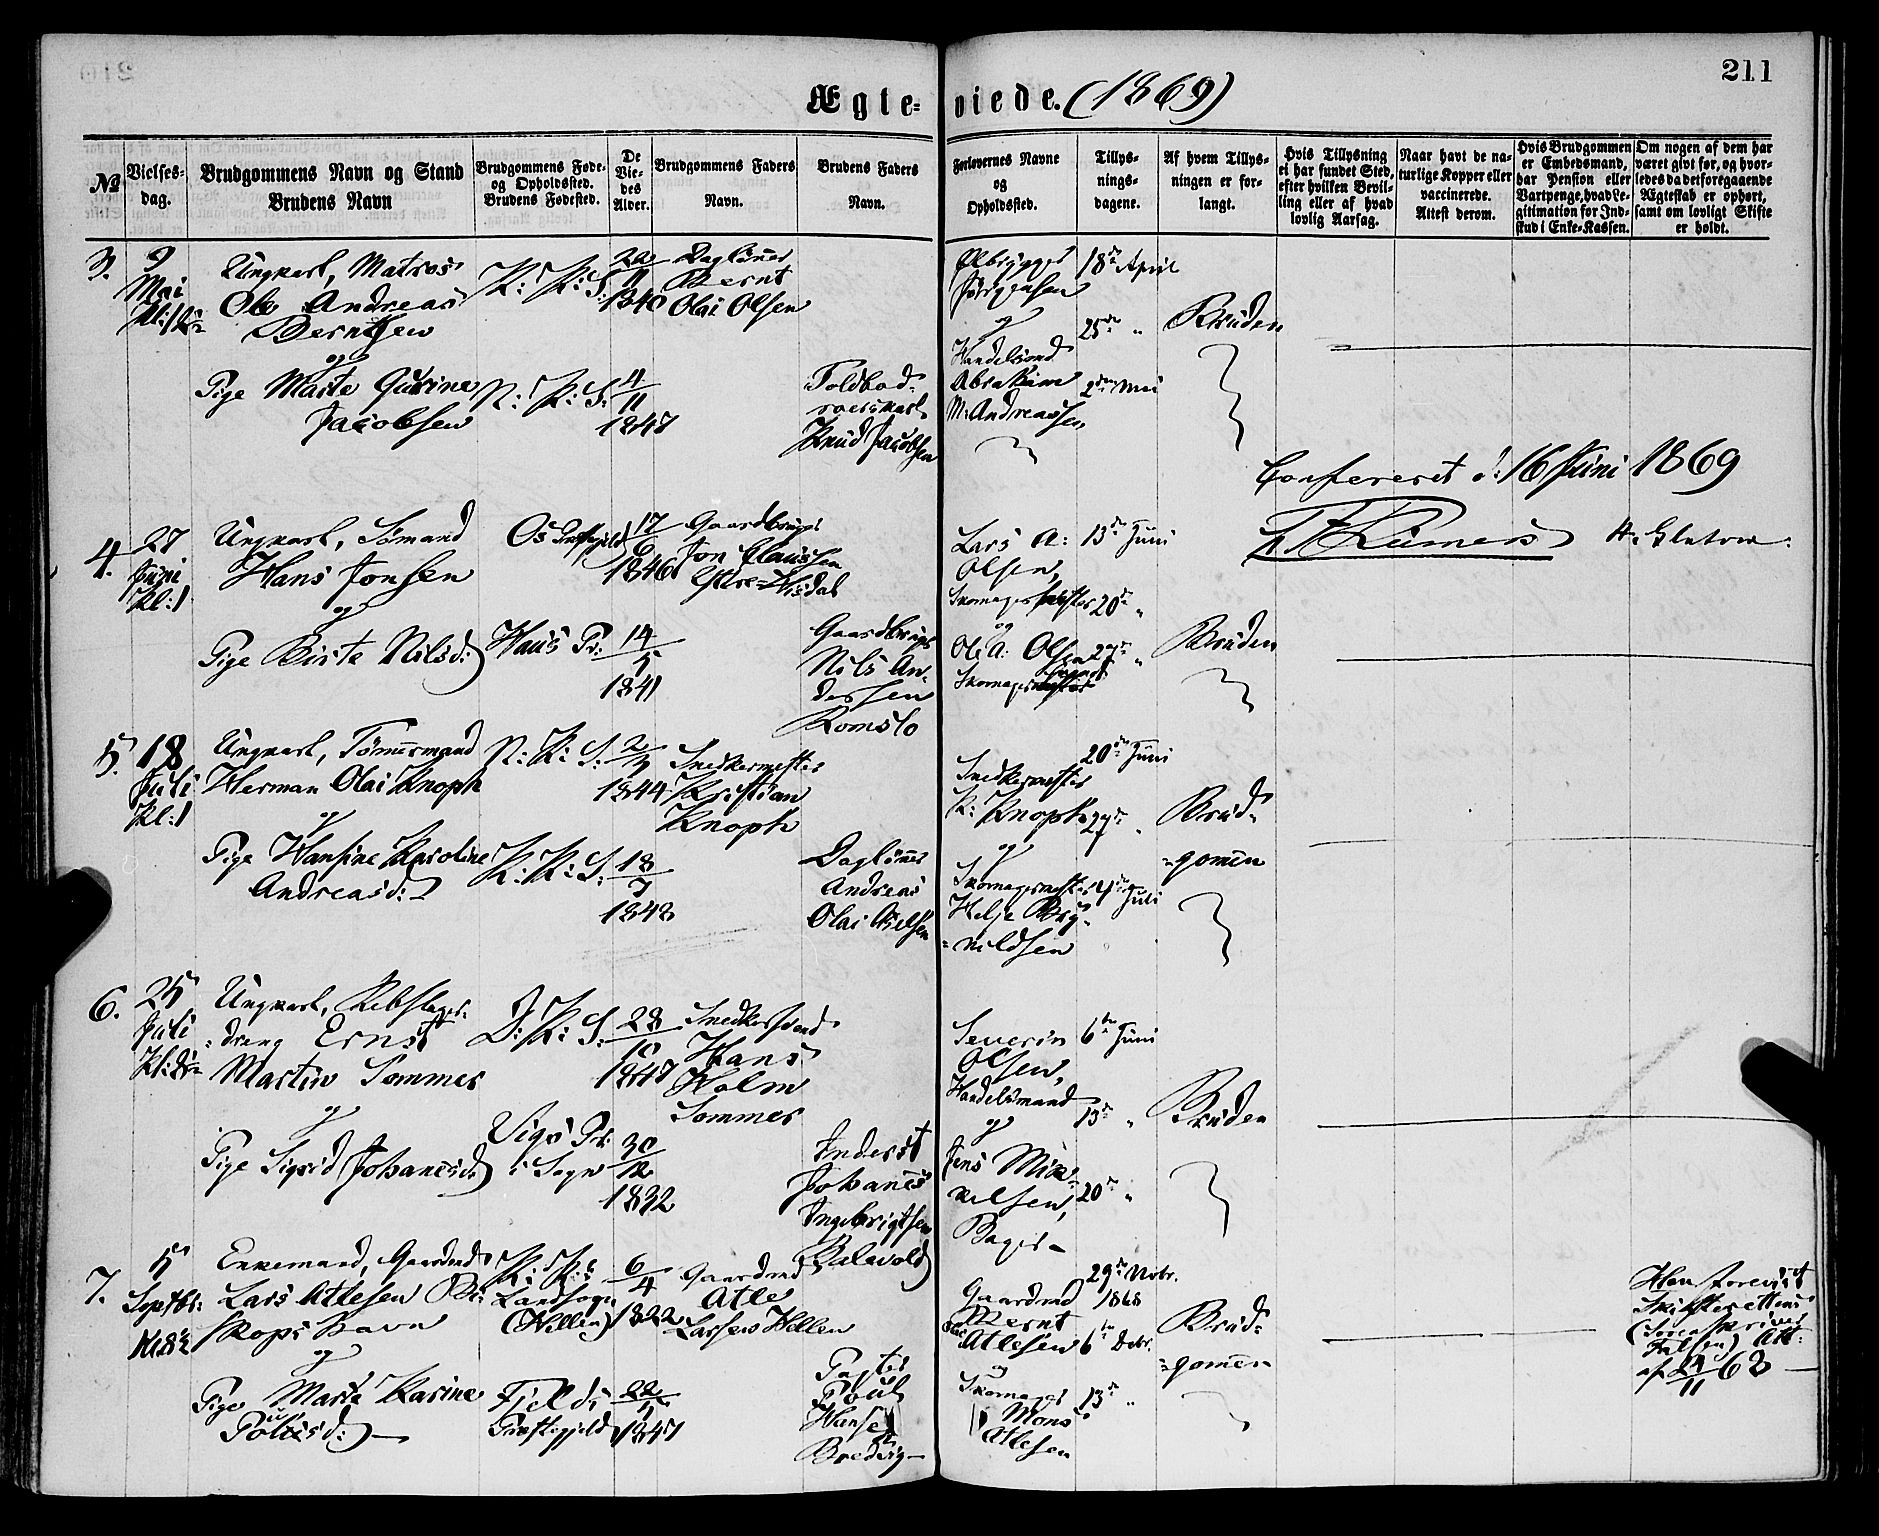 211
Ægte-
viede. (1869)
№
Vielses-
dag.
Brudgommens Navn og Stand
Brudens Navn
Brudgommens Føde-
og Opholdssted.
Brudens Fødested.
De
Vie-
des
Alder.
Brudgommens Faders
Navn.
Brudens Faders
Navn.
Forlovernes Navne
og
Opholdssted.
Tillys-
nings-
dagene.
Af hvem Tillys-
ningen er for-
langt.
Hvis Tillysning
ei har fundet Sted,
efter hvilken Bevil-
ling eller af hvad
lovlig Aarsag.
Naar havt de na-
turlige Kopper eller
vaccinerede.
Attest derom.
Hvis Brudgommen
er Embedsmand,
har Pension eller
Vartpenge, hvad Le-
gitimation for Ind-
skud i Enke-Kassen.
Om nogen af dem har
været givt før, og hvor-
ledes da det foregaaende
Ægteskab er ophørt,
samt om lovligt Skifte
er holdt.
3.
9
Mai
Ungkarl, Matros
Ole Andreas
Berntsen
og
Pige Marte Gurine
Jacobsen
K: K: S:
N: K: S:
22/11
1840
4/11
1847
Daglønner
Bernt
Olai Olsen
Toldbod-
roerskarl
Knud Jacobsen
Ølbrygger
Jørgensen
og
Handelsmd
Abraham
M: Andreassen
18de April
25de "
2den Mai
Bruden
Confereret d: 16 Juni 1869
4.
27
Juni
Kl: 1
Ungkarl, Sømand
Hans Jonsen
og
Pige Birte Nilsd:
Os Præstegjeld
Haus Pr:
17/6
1846
14/5
1841
Gaardbruger
Jon Claussen
Ystre-Hisdal
Gaardbruger
Nils An-
dersen
Romslo
Lars A:
Olsen,
Skomagermester
og
Ole A. Olsen
Skomagersvend
13de Juni
20de "
27de "
Bruden
5.
18
Juli
Kl: 1
Ungkarl, Tømmermand
Herman Olai Knoph
og
Pige Hansine Karoline
Andreasd:
N: K: S:
K: K: S:
2/3
1844
18/7
1848
Snedkermester
Kristian
Knoph
Daglønner
Andreas
Olai Nielsen
Snedkermester
K: Knoph
og
Skomagermester
Helje Bry-
nildsen
20de Juni
27de "
4de Juli
Brud-
gomen
6.
25
Juli
Ungkarl, Rebslager-
dreng Ernst
Martin Sommer
og
Pige Sigrid Johanesd:
D: K: S:
Vigs Pr:
i Sogn
28/10
1847
30/12
1832
Snedkersvend
Hans
Holm
Sommer
Inderst
Johanes
Ingebrigtsen
Severin
Olsen,
Handelsmand
og
Jens Mik-
kelsen,
Bager
6te Juni
13de "
20de "
Bruden
7.
5
Septbr:
Kl 8½
Enkemand, Gaardmd
Lars Atlesen
og
Pige Marta Karine
Poulsd:
K: K:s
Landsogn
(Hellen)
Fjelds
Præstegjeld
6/4
1822
22/5
1847
Gaardmd
Atle
Larsen Hellen
Poul
Hansen
Bredvig
Gaardmd
Bernt
Atlesen
og
Skomager
Mons
Atlesen
29de Novbr.
1868
6te Debr.
13de "
Brud-
gomen
Han forevist
Skifterettens
(Sorenskriver
Falsen) Att:
af 24/11 68